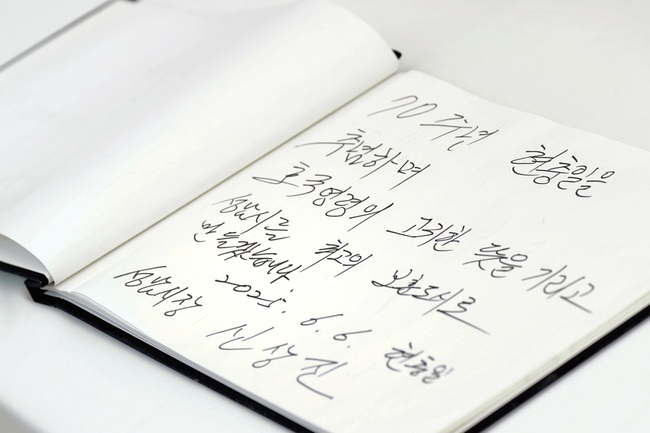 70주년 현충일을
추념하며
호국영령의 고귀한 뜻을 기리고
성남시를 최고의 보훈도시로
만들겠습니다
2025. 6. 6. 현충일
성남시장 신상진